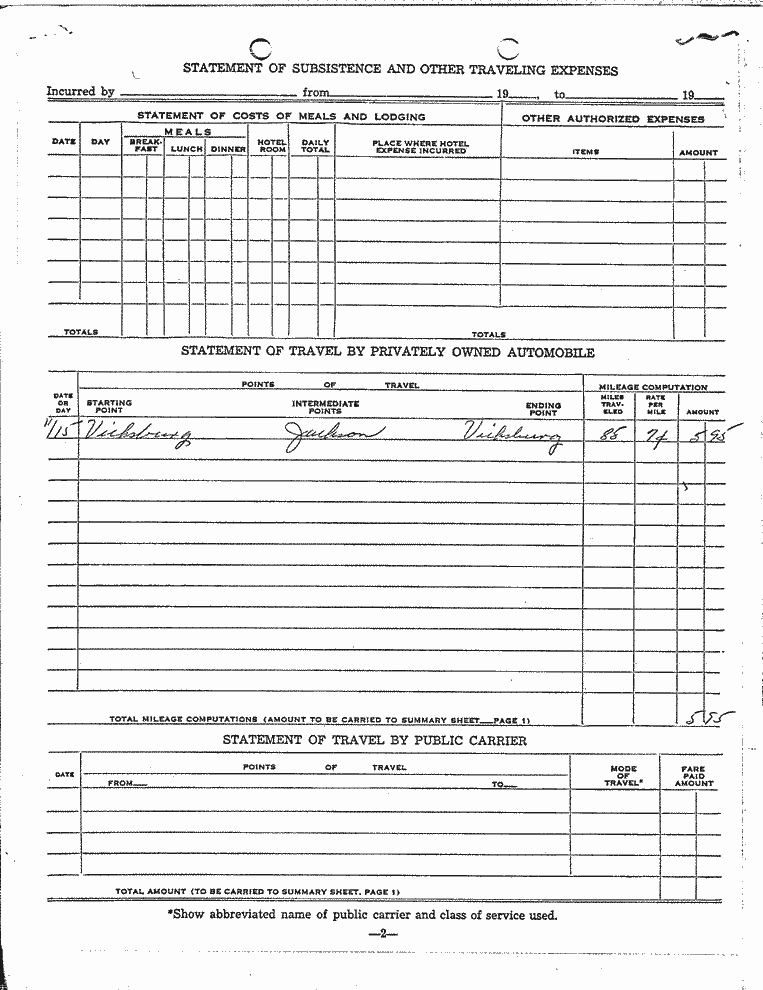 STATEMENT OF SUBSISTENCE AND OTHER TRAVELING EXPENSES
Incurred by from 19 , to 19
STATEMENT OF COSTS OF MEALS AND LODGING
OTHER AUTHORIZED EXPENSES
DATE
DAY
MEALS
BREAK-
FAST
LUNCH
DINNER
HOTEL
ROOM
DAILY
TOTAL
PLACE WHERE HOTEL
EXPENSE INCURRED
ITEMS
AMOUNT
TOTALS
TOTALS
STATEMENT OF TRAVEL BY PRIVATELY OWNED AUTOMOBILE
POINTS OF TRAVEL
MILEAGE COMPUTATION
DATE
OR
DAY
STARTING
POINT
INTERMEDIATE
POINTS
ENDING
POINT
MILES
TRAV-
ELED
RATE
PER
MILE
AMOUNT
11/15 Vicksburg Jackson Vicksburg 85 7¢ 5 95
TOTAL MILEAGE COMPUTATIONS (AMOUNT TO BE CARRIED TO SUMMARY SHEET—PAGE 1) 5 95
STATEMENT OF TRAVEL BY PUBLIC CARRIER
DATE
POINTS OF TRAVEL
FROM— TO—
MODE
OF
TRAVEL*
FARE
PAID
AMOUNT
TOTAL AMOUNT (TO BE CARRIED TO SUMMARY SHEET, PAGE 1)
*Show abbreviated name of public carrier and class of service used.
—2—